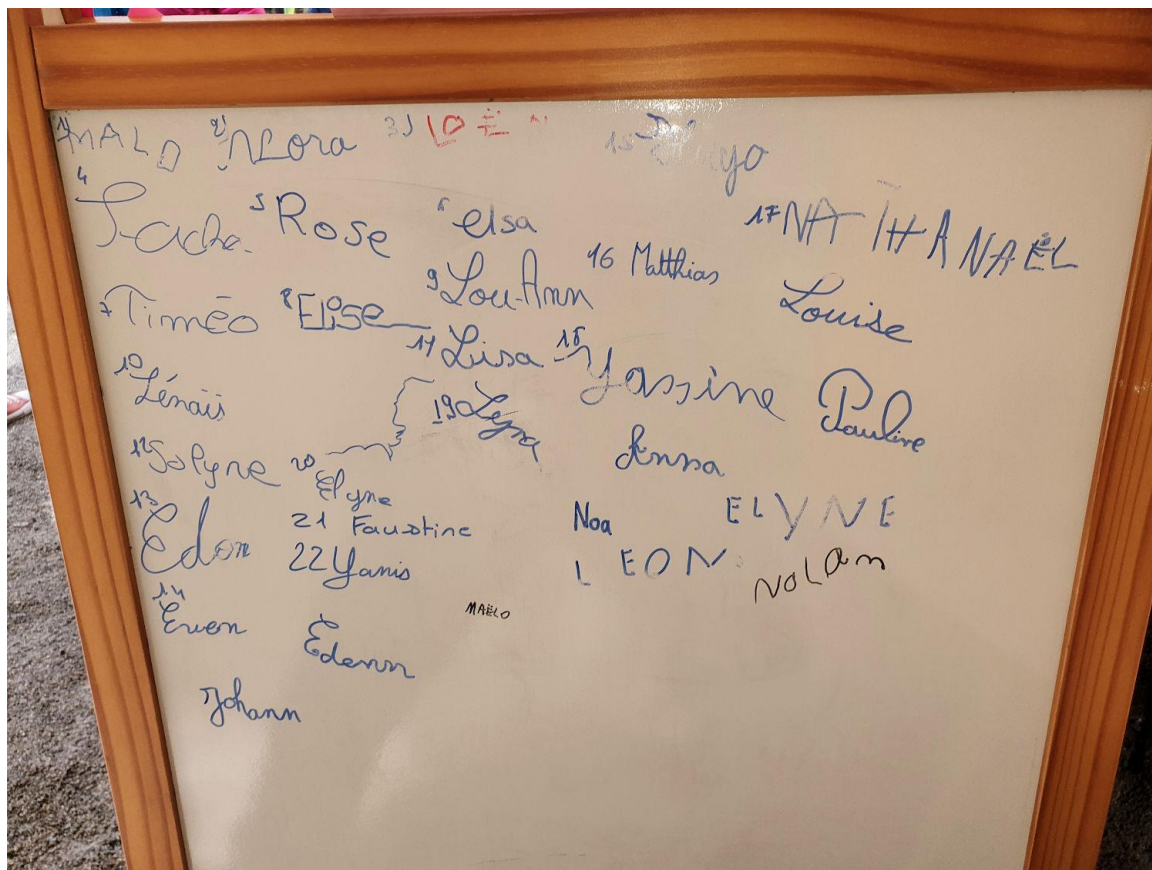 1) MALO 2) Nora 3) LOÉN 15
4 Sacha 5 Rose 6 elsa 17 NATHANAËL
9 Lou-Ann 16 Matthias Louise
7 Timéo 8 Elise
11 Lisa 18 Yassine Pauline
10 Lénaïs 19 Leyna
12 Solyne 20 Elyne Anna
13 Edon 21 Faustine Noa ELYNE
22 Yanis LEON NOLan
14 Ewen MAËLO
Edenn
Johann